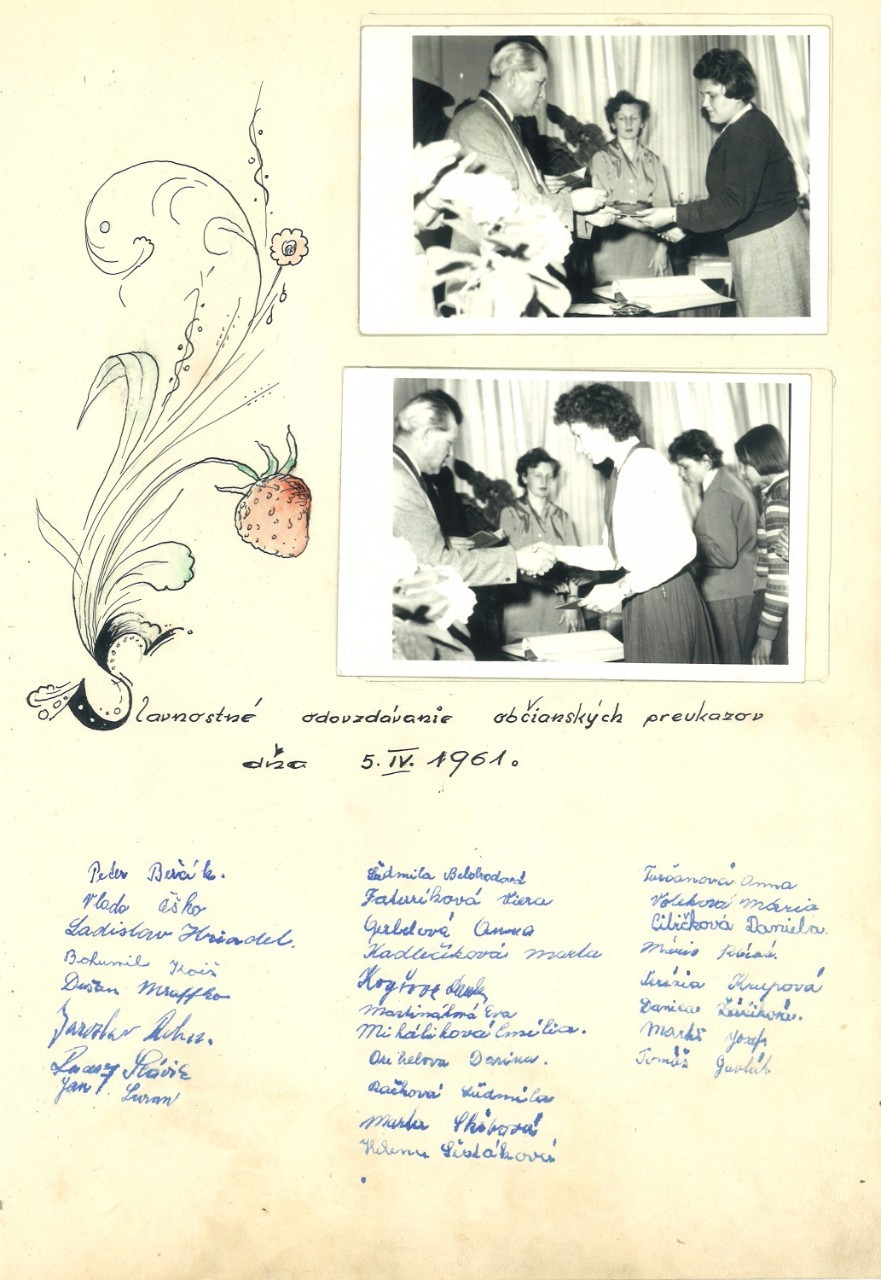 Slavnostné odovzdávanie občianskych preukazov
dňa 5. IV. 1961.
Peter Beňák.
Vlado Eško
Ladislav Hriadel.
Bohumil
Dušan Mraffko
Jaroslav
Slávik
Jan Luran
Ľudmila Belohradová
Faturíková Viera
Gerbelová Anna
Kadlečíková Marta
Martináková Eva
Miháliková Emília.
Darina.
Račková Ľudmila
Marta Skubová
Helena Šestáková
Turčanová Anna
Voleková Mária
Cibičková Daniela.
Mário
Terézia Krupová
Danica
Jozef
Tomáš Gavlák